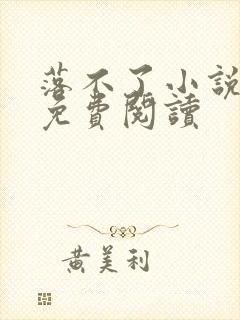 落不了小説
免費閱讀
黄美利